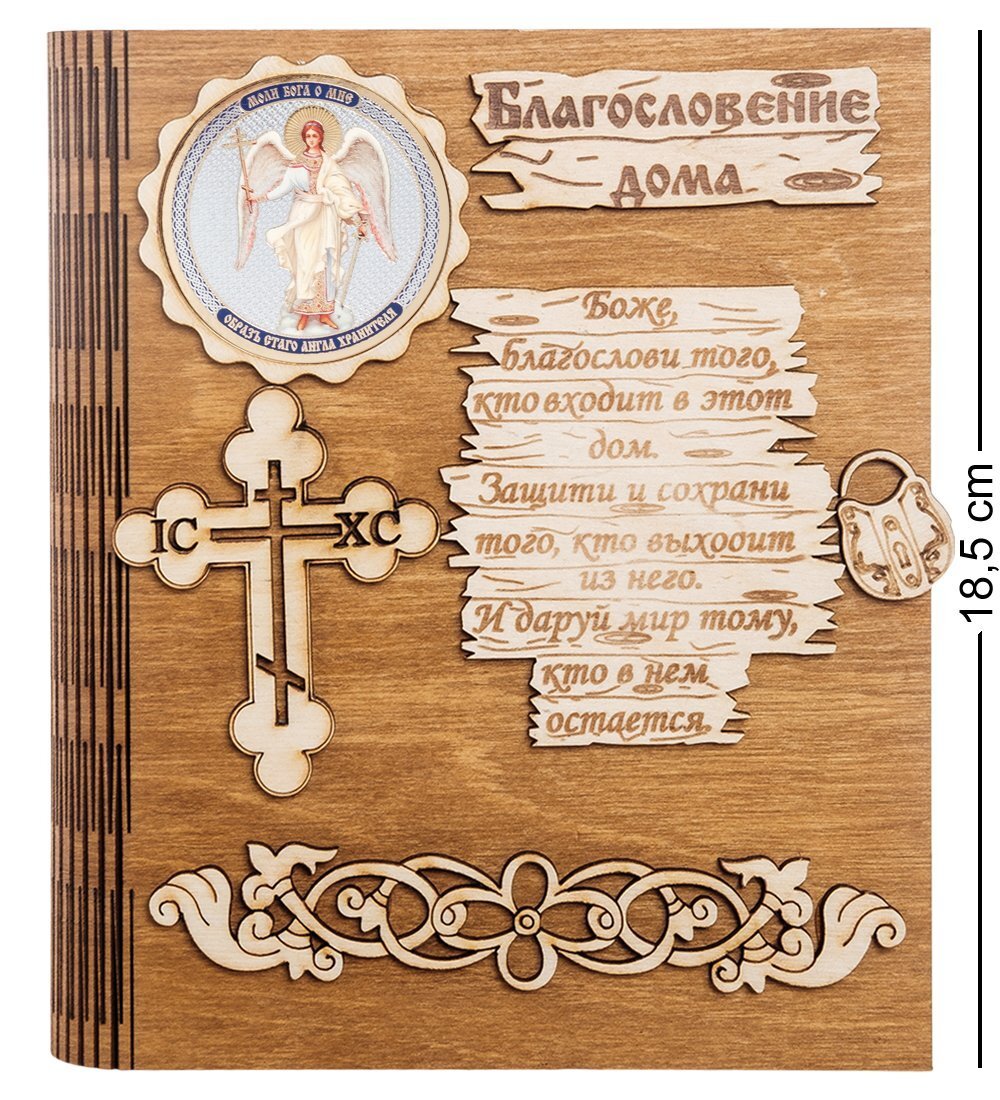 МОЛИ БОГА О МНЕ
ОБРАЗЪ СТАГО АНГЛА ХРАНИТЕЛЯ
Благословение
дома
Боже,
Благослови того,
кто входит в этот
дом.
Защити и сохрани
того, кто выходит
из него.
И даруй мир тому,
кто в нем
остается.
IC XC
18,5 cm